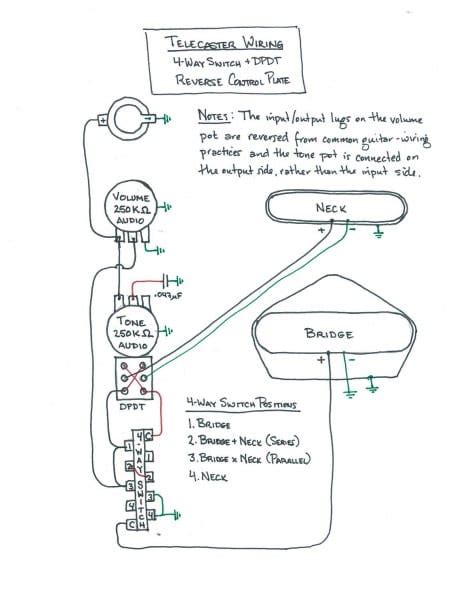 TELECASTER WIRING
4-WAY SWITCH + DPDT
REVERSE CONTROL PLATE
NOTES: THE INPUT/OUTPUT LUGS ON THE VOLUME
POT ARE REVERSED FROM COMMON GUITAR-WIRING
PRACTICES AND THE TONE POT IS CONNECTED ON
THE OUTPUT SIDE, RATHER THAN THE INPUT SIDE.
+ -
VOLUME
250KΩ
AUDIO
NECK
+ -
.047µF
TONE
250KΩ
AUDIO
BRIDGE
+ -
DPDT
4-WAY SWITCH POSITIONS
1. BRIDGE
2. BRIDGE + NECK (SERIES)
3. BRIDGE x NECK (PARALLEL)
4. NECK
4-WAY SWITCH
C
1
1
2
2
3
3
4
4
C